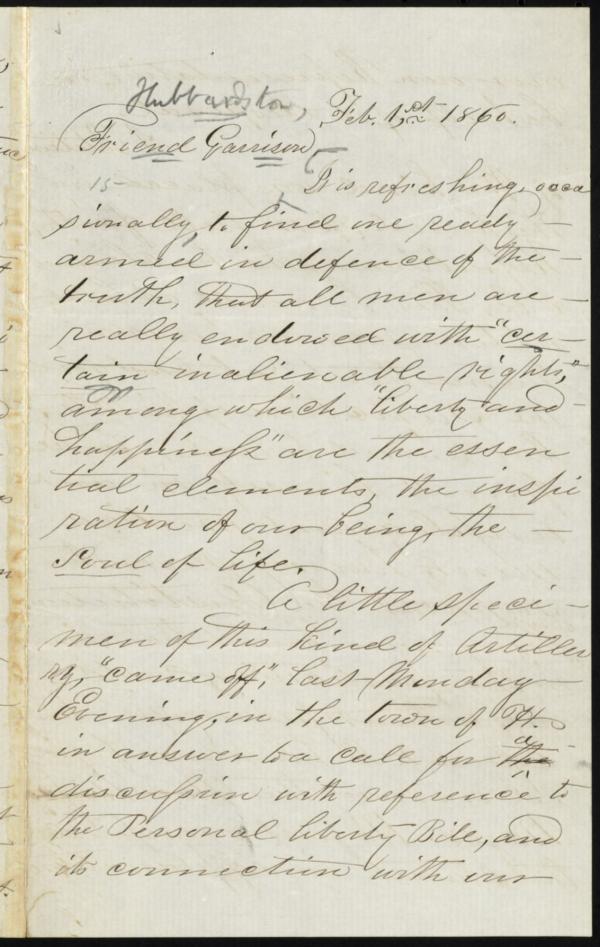 Hubbardston,
Feb. 1,st 1860.
Friend Garrison,
15
It is refreshing, occa
sionally, to find one ready
armed in defence of the
truth, that all men are
really endowed with "cer-
tain inalienable rights,"
among which "liberty and
happiness" are the essen
tial elements, the inspi
ration of our being, the
soul of life.
A little speci-
men of this kind of Artille
ry, "came off", last Monday
Evening, in the town of H.
in answer to a call for the a
discussion with reference to
the Personal liberty Bill, and
its connection with our